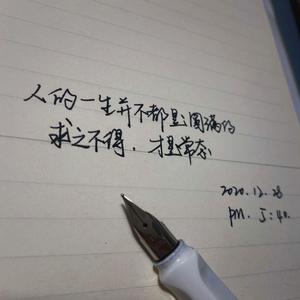 人的一生并不都是圆满的
求之不得，才是常态
2020.12.28
PM. 5:40.